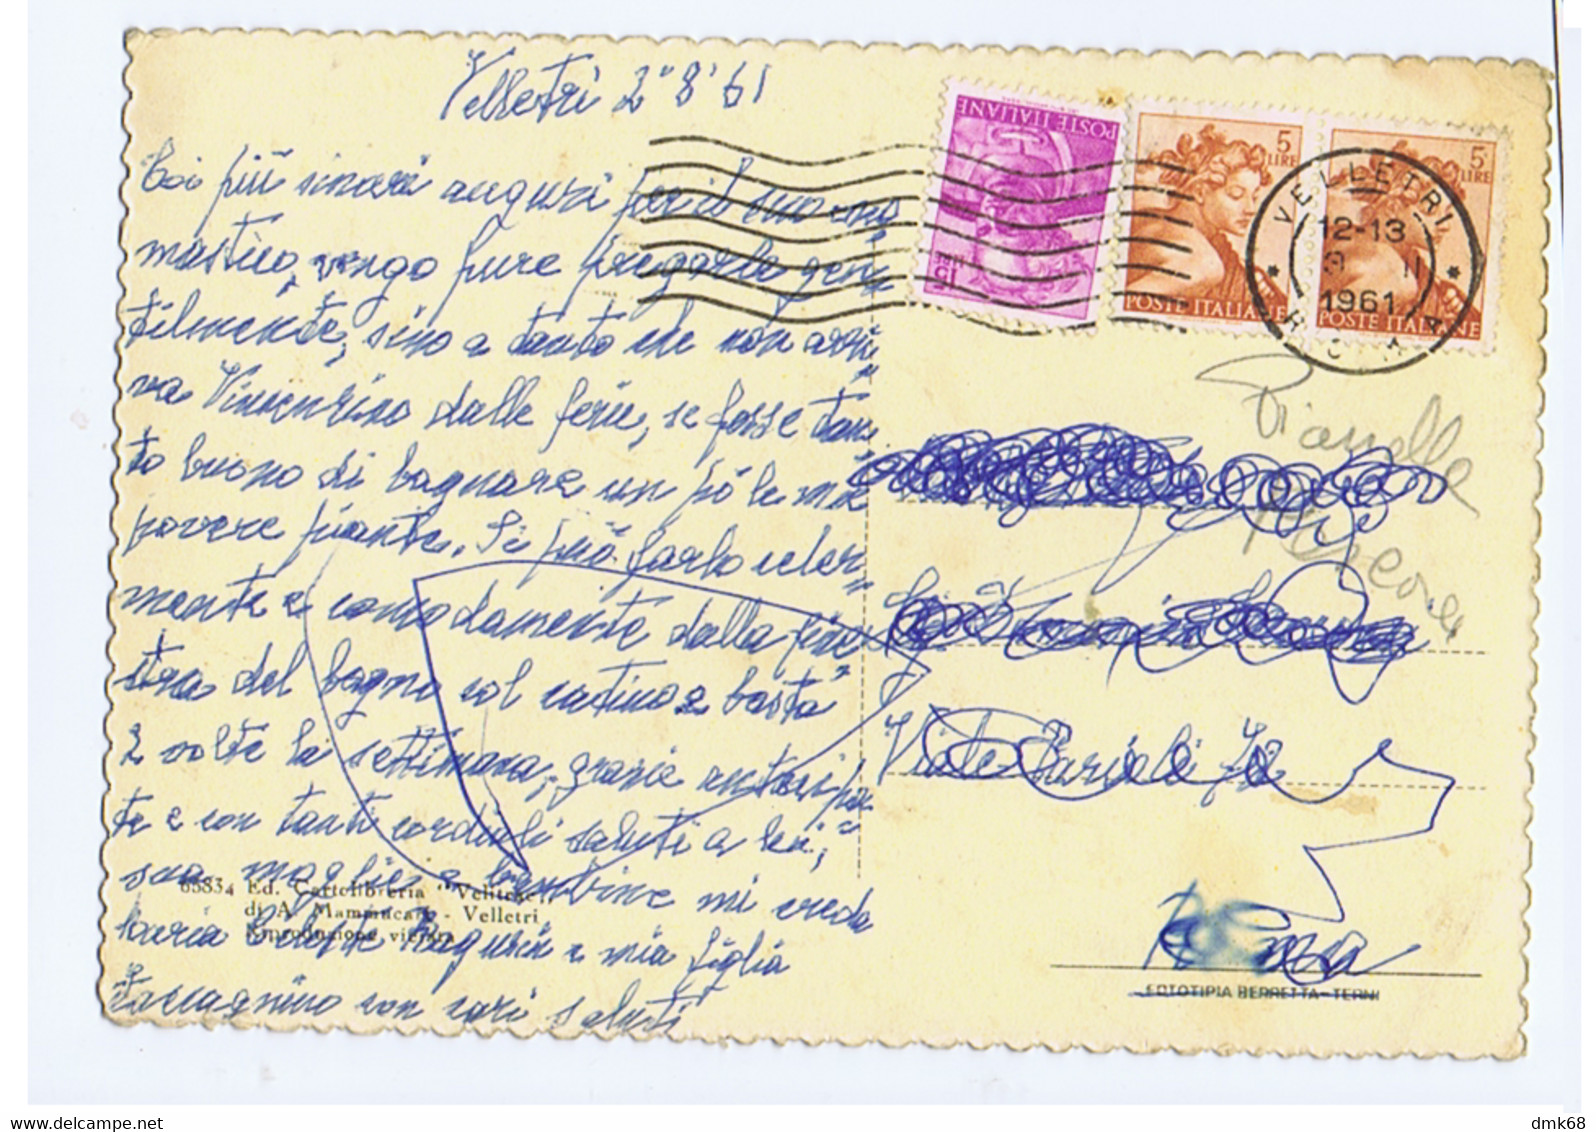 Velletri 2"8'61
Coi più sinceri auguri per il suo ono
mastico, vengo pure pregarla gen
tilmente, sino a tanto che non arri
va Vincenzino dalle ferie, se fosse tan
to buono di bagnare un pò le mie
povere piante. Si può farlo celer
mente e comodamente dalla fine
stra del bagno col catino e basta
2 volte la settimana, grazie
te e con tanti cordiali saluti a lei,
sua moglie e bambine mi creda
e mia figlia
con cari saluti
65834 Ed. Cartolibreria "Veliterna"
di A. Mammucari - Velletri
Riproduzione vietata
POSTE ITALIANE
15 LIRE
5 LIRE
POSTE ITALIANE
5 LIRE
POSTE ITALIANE
VELLETRI
12-13
1961
ROMA
Viale Parioli 72
Roma
FOTOTIPIA BERRETTA - TERNI
dmk68